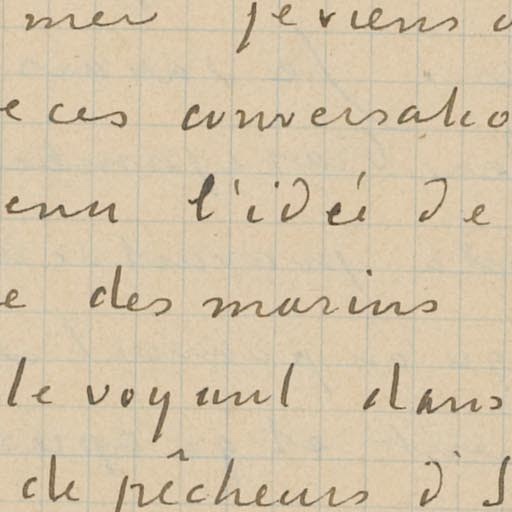 mer je viens
ces conversatio
enu l'idée de
e des marins
le voyant dans
de pêcheurs d'I